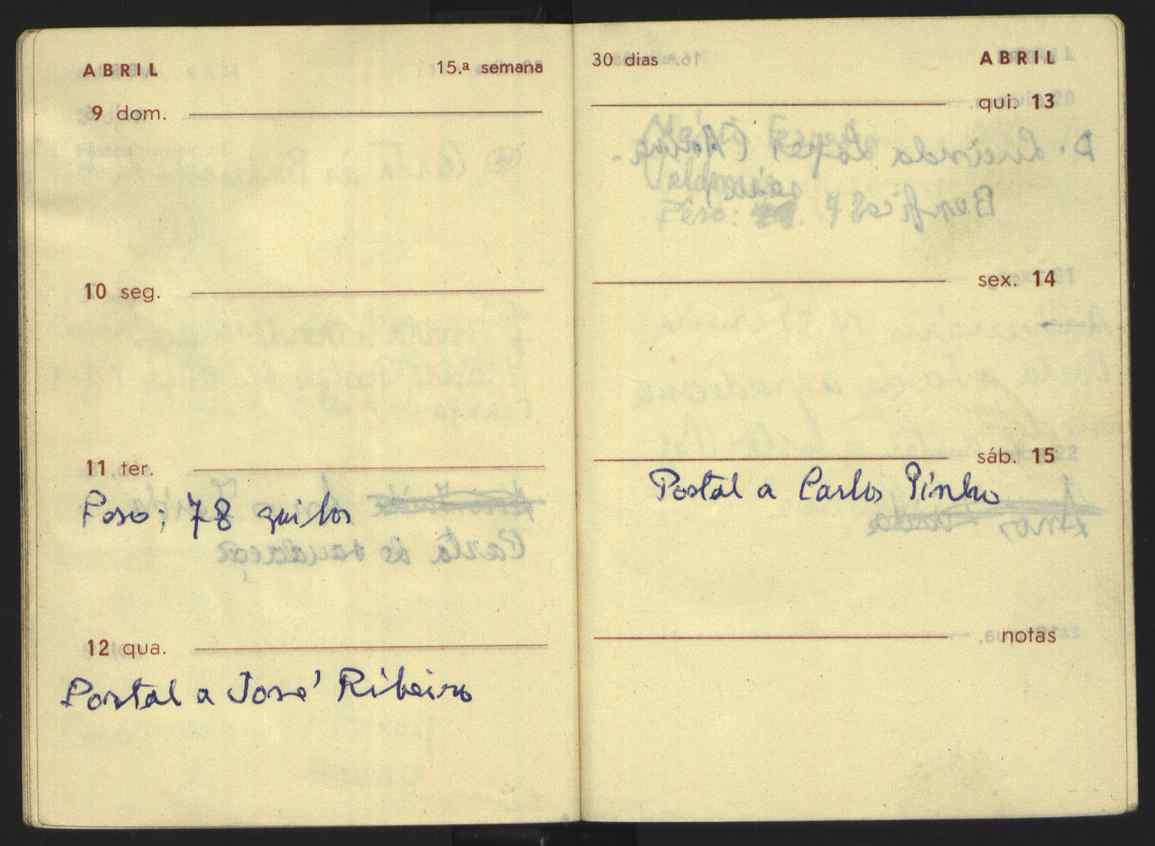 ABRIL 15.ª semana
9 dom.
10 seg.
11 ter.
Peso: 78 quilos
12 qua.
Postal a José Ribeiro
30 dias ABRIL
qui. 13
sex. 14
sáb. 15
Postal a Carlos Pinho
notas